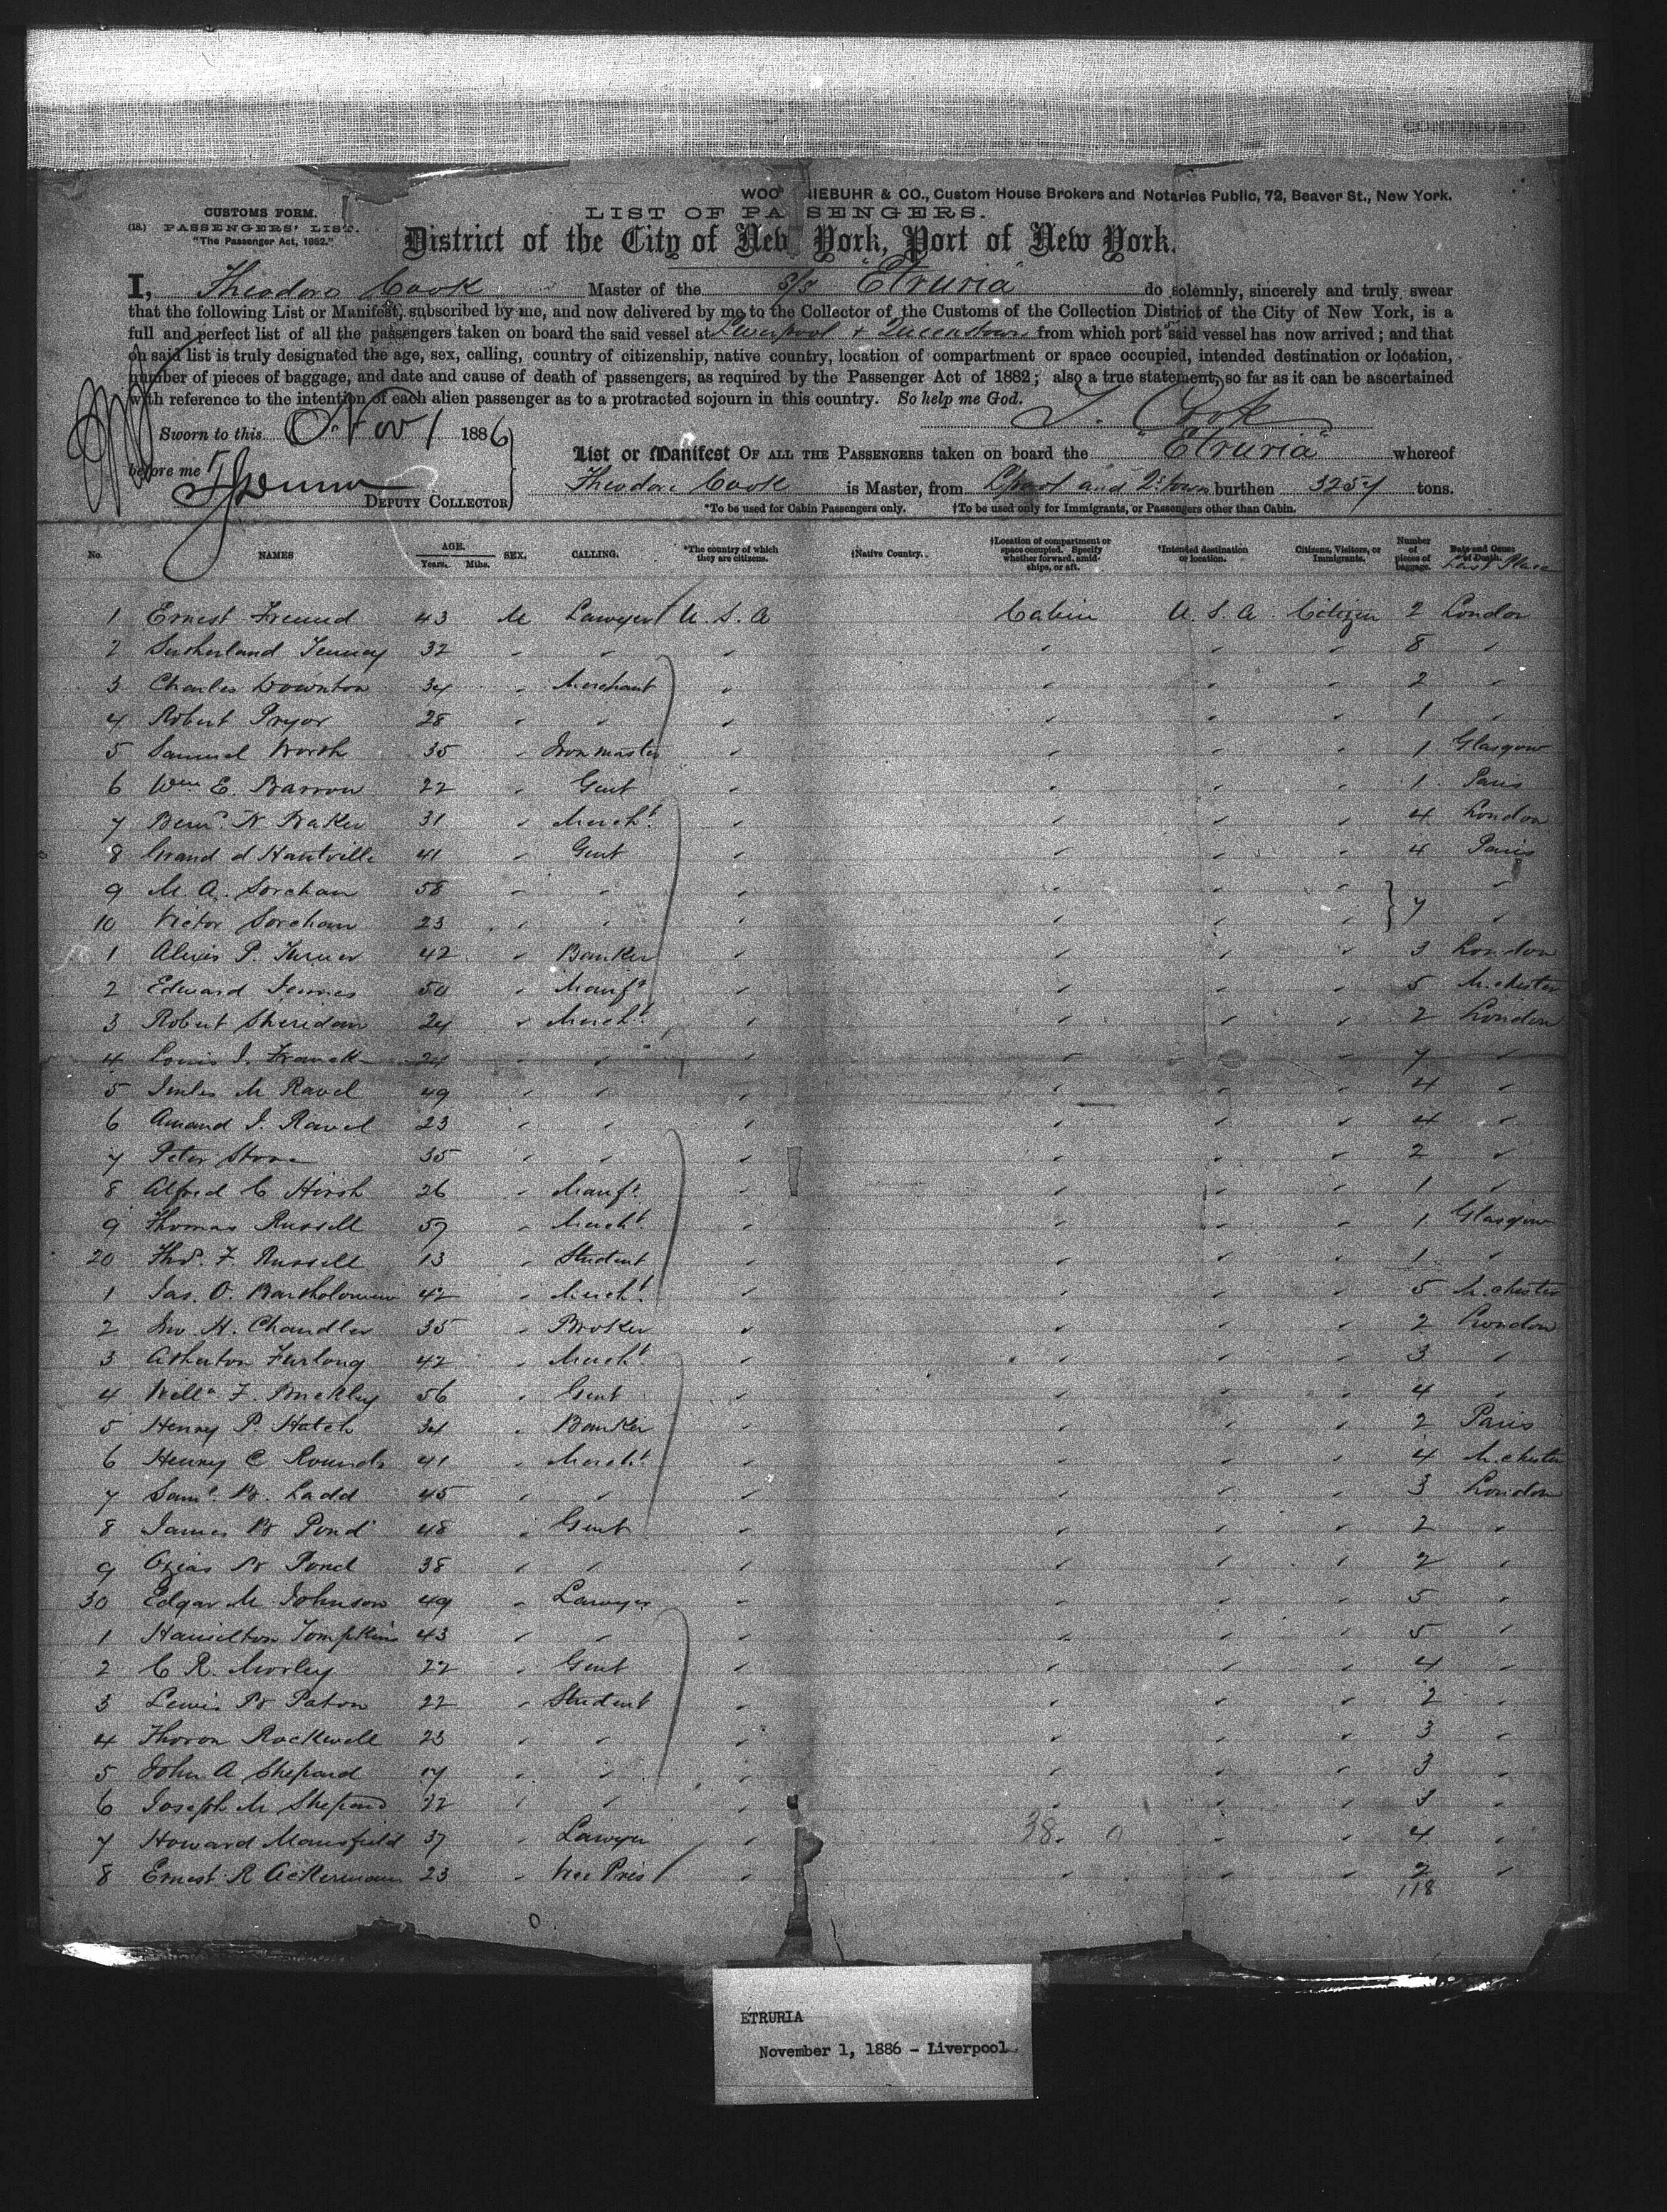 CONTINUED
WOO NIEBUHR & CO., Custom House Brokers and Notaries Public, 72, Beaver St., New York.
CUSTOMS FORM.
LIST OF PASSENGERS.
(18.) PASSENGERS' LIST.
"The Passenger Act, 1882."
District of the City of New York, Port of New York.
I, Theodore Cook Master of the s/s "Etruria" do solemnly, sincerely and truly swear
that the following List or Manifest, subscribed by me, and now delivered by me to the Collector of the Customs of the Collection District of the City of New York, is a
full and perfect list of all the passengers taken on board the said vessel at Liverpool & Queenstown from which port said vessel has now arrived; and that
on said list is truly designated the age, sex, calling, country of citizenship, native country, location of compartment or space occupied, intended destination or location,
number of pieces of baggage, and date and cause of death of passengers, as required by the Passenger Act of 1882; also a true statement, so far as it can be ascertained
with reference to the intention of each alien passenger as to a protracted sojourn in this country. So help me God.
T. Cook
Sworn to this Nov 1 1886
before me
DEPUTY COLLECTOR
List or Manifest OF ALL THE PASSENGERS taken on board the "Etruria" whereof
Theodore Cook is Master, from L'pool and Q'town burthen 3257 tons.
*To be used for Cabin Passengers only. †To be used only for Immigrants, or Passengers other than Cabin.
No. NAMES AGE. Years. Mths. SEX. CALLING. *The country of which they are citizens. †Native Country. †Location of compartment or space occupied. Specify whether forward, amidships, or aft. †Intended destination or location. Citizens, Visitors, or Immigrants. Number of pieces of baggage. Date and Cause of Death. Last Place
1 Ernest Freund 43 M Lawyer U. S. A Cabin U. S. A. Citizen 2 London
2 Sutherland Tenney 32 " " " " " " 8 "
3 Charles Downton 34 " Merchant " " " " 2 "
4 Robert Pryor 28 " " " " " " 1 "
5 Samuel Worth 35 " Iron master " " " " 1 Glasgow
6 Wm E. Barrow 22 " Gent " " " " 1 Paris
7 Benj. Baker 31 " Mercht. " " " " 4 London
8 Grand d Hautville 41 " Gent " " " " 4 Paris
9 M. A. Sorchan 58 " " " " " " "
10 Victor Sorchan 23 " " " " " " 7 "
1 Alexis P. Turner 42 " Banker " " " " 3 London
2 Edward 50 " Manfr " " " " 5 M.chester
3 Robert Sheridan 24 " Mercht. " " " " 2 London
4 Louis J. Franck 24 " " " " " " 7 "
5 Jules M Ravel 49 " " " " " " 4 "
6 Amand J. Ravel 23 " " " " " " 4 "
7 Peter Stone 35 " " " " " " 2 "
8 Alfred C Hirsh 26 " Manfr " " " " 1 "
9 Thomas Russell 57 " Mercht. " " " " 1 Glasgow
20 Thos. F. Russell 13 " Student " " " " 1 "
1 Jas. O. Bartholomew 42 " Mercht. " " " " 5 M.chester
2 Jno H. Chandler 35 " Broker " " " " 2 London
3 Atherton Furlong 42 " Mercht. " " " " 3 "
4 Willm F. Buckley 56 " Gent " " " " 4 "
5 Henry P. Hatch 34 " Banker " " " " 2 Paris
6 Henry C Rounds 41 " Mercht " " " " 4 M.chester
7 Saml. B. Ladd 45 " " " " " " 3 London
8 James B Pond 48 " Gent " " " " 2 "
9 Ozias W Pond 38 " " " " " " 2 "
30 Edgar M Johnson 49 " Lawyer " " " " 5 "
1 Hamilton Tompkins 43 " " " " " " 5 "
2 C R. Morley 22 " Gent " " " " 4 "
3 Lewis B Paton 22 " Student " " " " 2 "
4 Thoron Rockwell 23 " " " " " " 3 "
5 John A Shepard 17 " " " " " " 3 "
6 Joseph M Shepard 22 " " " " " " 3 "
7 Howard Mansfield 37 " Lawyer " 38. 0 " " 4 "
8 Ernest R Ackermann 23 " Vice Pres " " " " 2 "
118
ETRURIA
November 1, 1886 - Liverpool